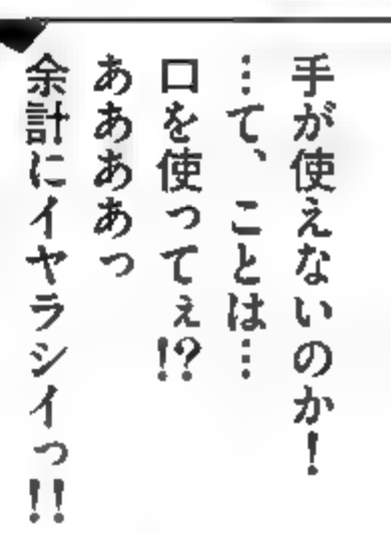 手が使えないのか！
…て、ことは…
口を使ってぇ!?
ああああっ
余計にイヤラシイっ!!